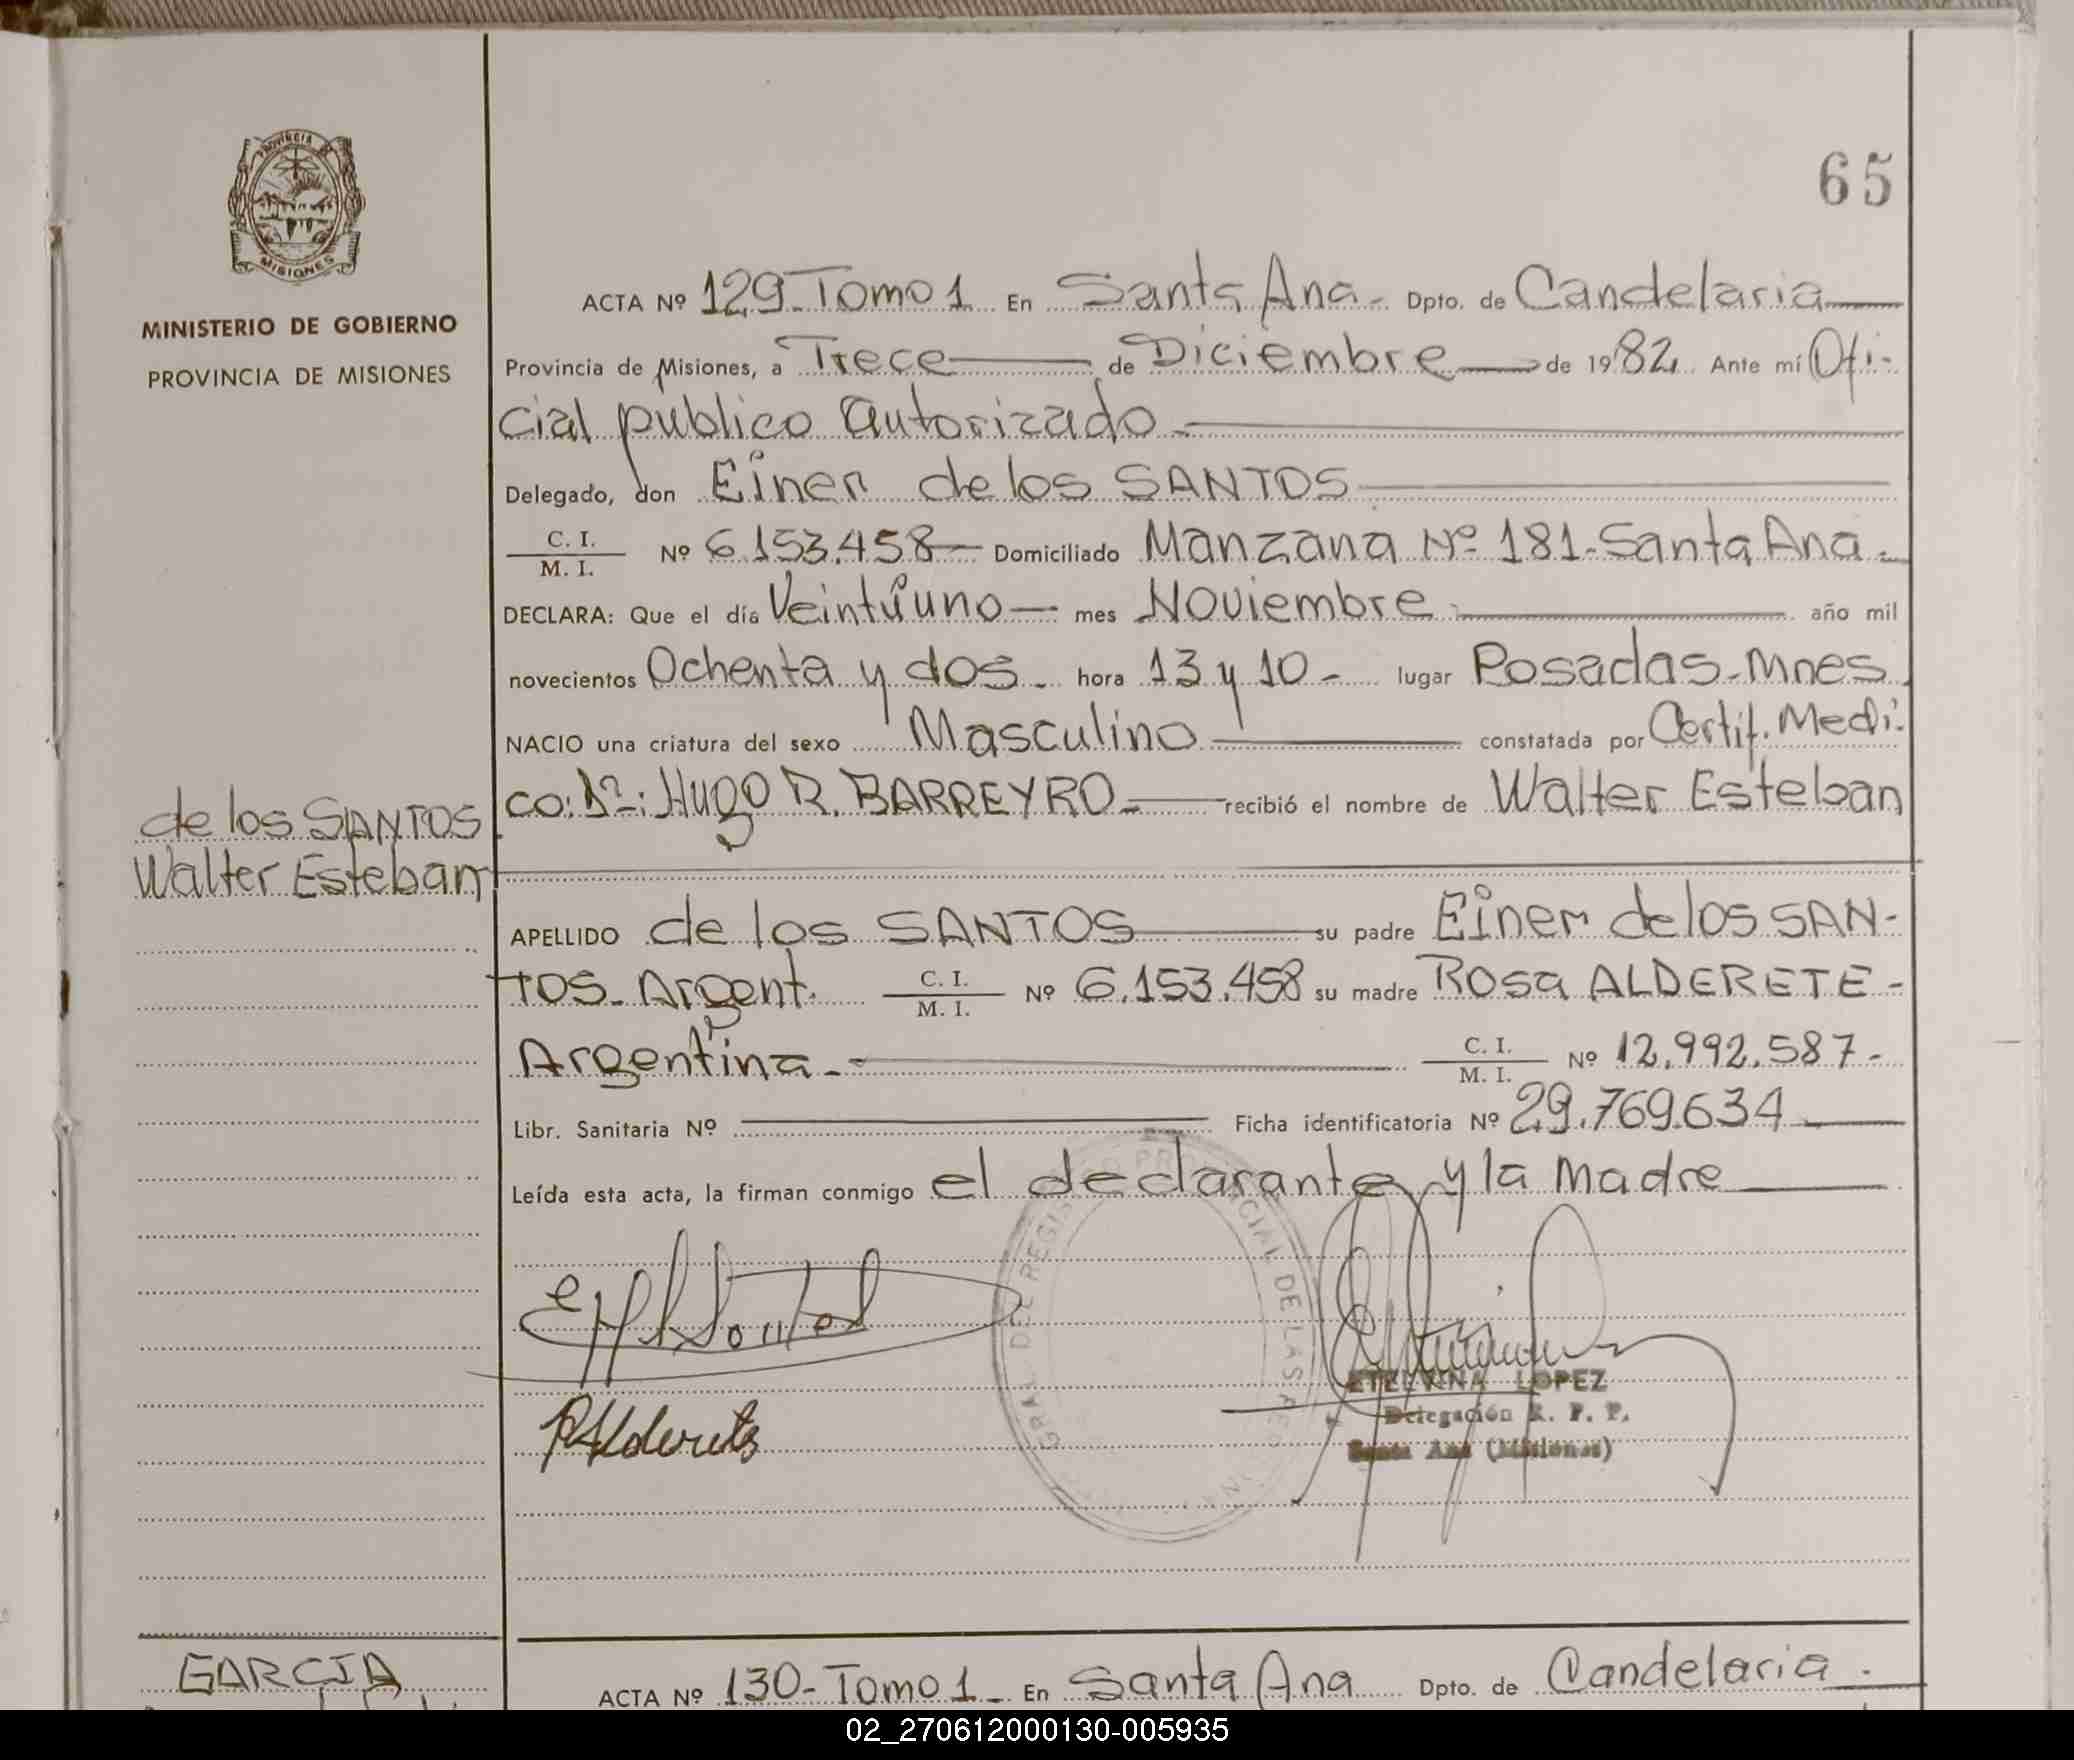 PROVINCIA DE
MISIONES
MINISTERIO DE GOBIERNO
PROVINCIA DE MISIONES
65
ACTA Nº 129-Tomo 1 En Santa Ana- Dpto. de Candelaria
Provincia de Misiones, a Trece de Diciembre de 1982 Ante mí Ofi-
cial público autorizado
Delegado, don Einer de los SANTOS
C. I.
M. I. Nº 6.153.458 Domiciliado Manzana Nº 181-Santa Ana-
DECLARA: Que el día Veintiuno mes Noviembre año mil
novecientos Ochenta y dos- hora 13 y 10- lugar Posadas-Mnes
NACIO una criatura del sexo Masculino constatada por Certif. Medi-
co: Dº: Hugo R. BARREYRO- recibió el nombre de Walter Esteban
de los SANTOS
Walter Esteban
APELLIDO de los SANTOS su padre Einer de los SAN-
TOS- Argent. C. I.
M. I. Nº 6.153.458 su madre Rosa ALDERETE-
Argentina- C. I.
M. I. Nº 12.992.587-
Libr. Sanitaria Nº Ficha identificatoria Nº 29.769.634
Leída esta acta, la firman conmigo el declarante y la madre
GRAL. DEL REGISTRO PROVINCIAL DE LAS PERSONAS
RAlderete
ETELVINA LOPEZ
Delegación R. P. P.
Santa Ana (Misiones)
GARCIA
ACTA Nº 130-Tomo 1- En Santa Ana Dpto. de Candelaria-
02_270612000130-005935